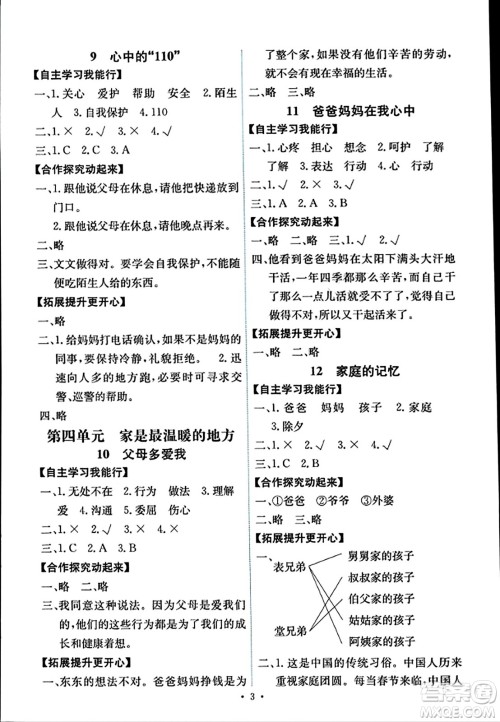 9 心中的“110”
【自主学习我能行】
一、1. 关心 爱护 帮助 安全 2. 陌生
人 3. 自我保护 4. 110
二、1. × 2. √ 3. × 4. √
三、1. C 2. C 3. A
【合作探究动起来】
一、1. 跟他说父母在休息,请他把快递放到
门口。
2. 跟他说父母在休息,请他晚点再来。
二、略
三、文文做得对。要学会自我保护,不能随
便吃陌生人给的东西。
【拓展提升更开心】
一、略
二、1. 给妈妈打电话确认,如果不是妈妈的
同事,要保持冷静,礼貌拒绝。 2. 迅
速向人多的地方跑,可以寻求交警、
巡警的帮助。
四、略
第四单元 家是最温暖的地方
10 父母多爱我
【自主学习我能行】
一、1. 无处不在 2. 行为 做法 3. 理解
爱 4. 沟通 5. 大 丰富
二、1. √ 2. × 3. √ 4. √
三、1. C 2. A 3. A
【合作探究动起来】
一、略 二、略
三、我同意这种说法。因为父母是爱我们
的,他们这些行为都是为了我们的成长
和健康着想。
【拓展提升更开心】
一、东东的想法不对。爸爸妈妈挣钱是为
了整个家,如果没有他们辛苦的劳动,
就没有现在幸福的生活。
二、略 三、略
11 爸爸妈妈在我心中
【自主学习我能行】
一、1. 心疼 担心 想念 2. 呵护 了解
了解 3. 表达 行动 4. 行动
二、1. √ 2. × 3. √ 4. ×
三、1. C 2. A 3. B
【合作探究动起来】
一、略 二、略 三、略
四、他看到爸爸妈妈在太阳下满头大汗地
干活,一年四季都不得清闲,感受到了
他们的辛苦。因为心疼他们,所以才
干活的。
【拓展提升更开心】
一、略 二、略 三、略
12 家庭的记忆
【自主学习我能行】
一、1. 爸爸 妈妈 孩子 2. 家庭
3. 除夕
二、1. √ 2. × 3. √
三、1. C 2. A 3. B
【合作探究动起来】
一、①爸爸 ②爷爷 ③外公
二、略 三、略
【拓展提升更开心】
一、
表兄弟
堂兄弟
舅舅家的孩子
叔叔家的孩子
伯伯家的孩子
姑姑家的孩子
阿姨家的孩子
二、1. 这是中国的传统习俗。中国人历来
重视家庭团圆。每当春节来临,中国
· 3 ·
答案圈
MXQE.COM